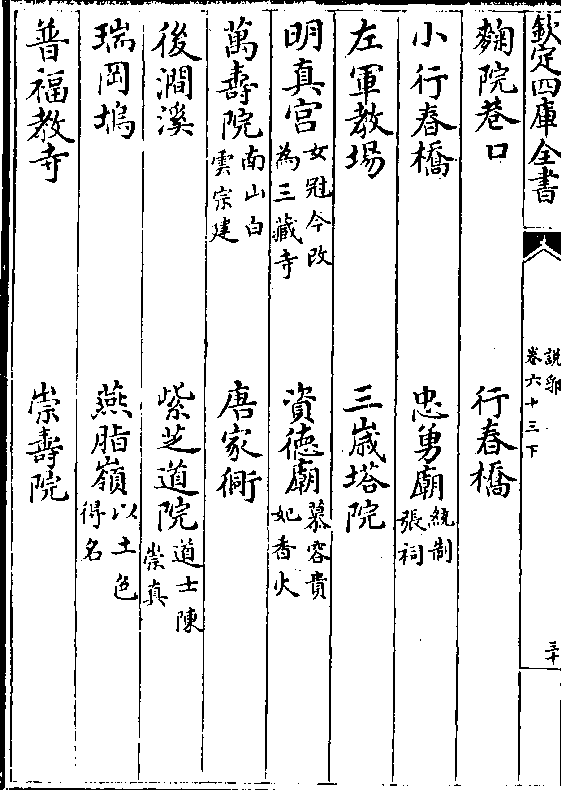 欽定四庫全書
說郛
卷六十三下
三十
麴院巷口 行春橋
小行春橋 忠勇廟 統制張祠
左軍教場 三歲塔院
明真宫 女冠今改為三藏寺 資德廟 慕容貴妃香火
萬壽院 南山白雲宗建 唐家衕
後澗溪 紫芝道院 道士陳崇真
瑞岡塢 燕脂嶺 以土色得名
普福教寺 崇壽院